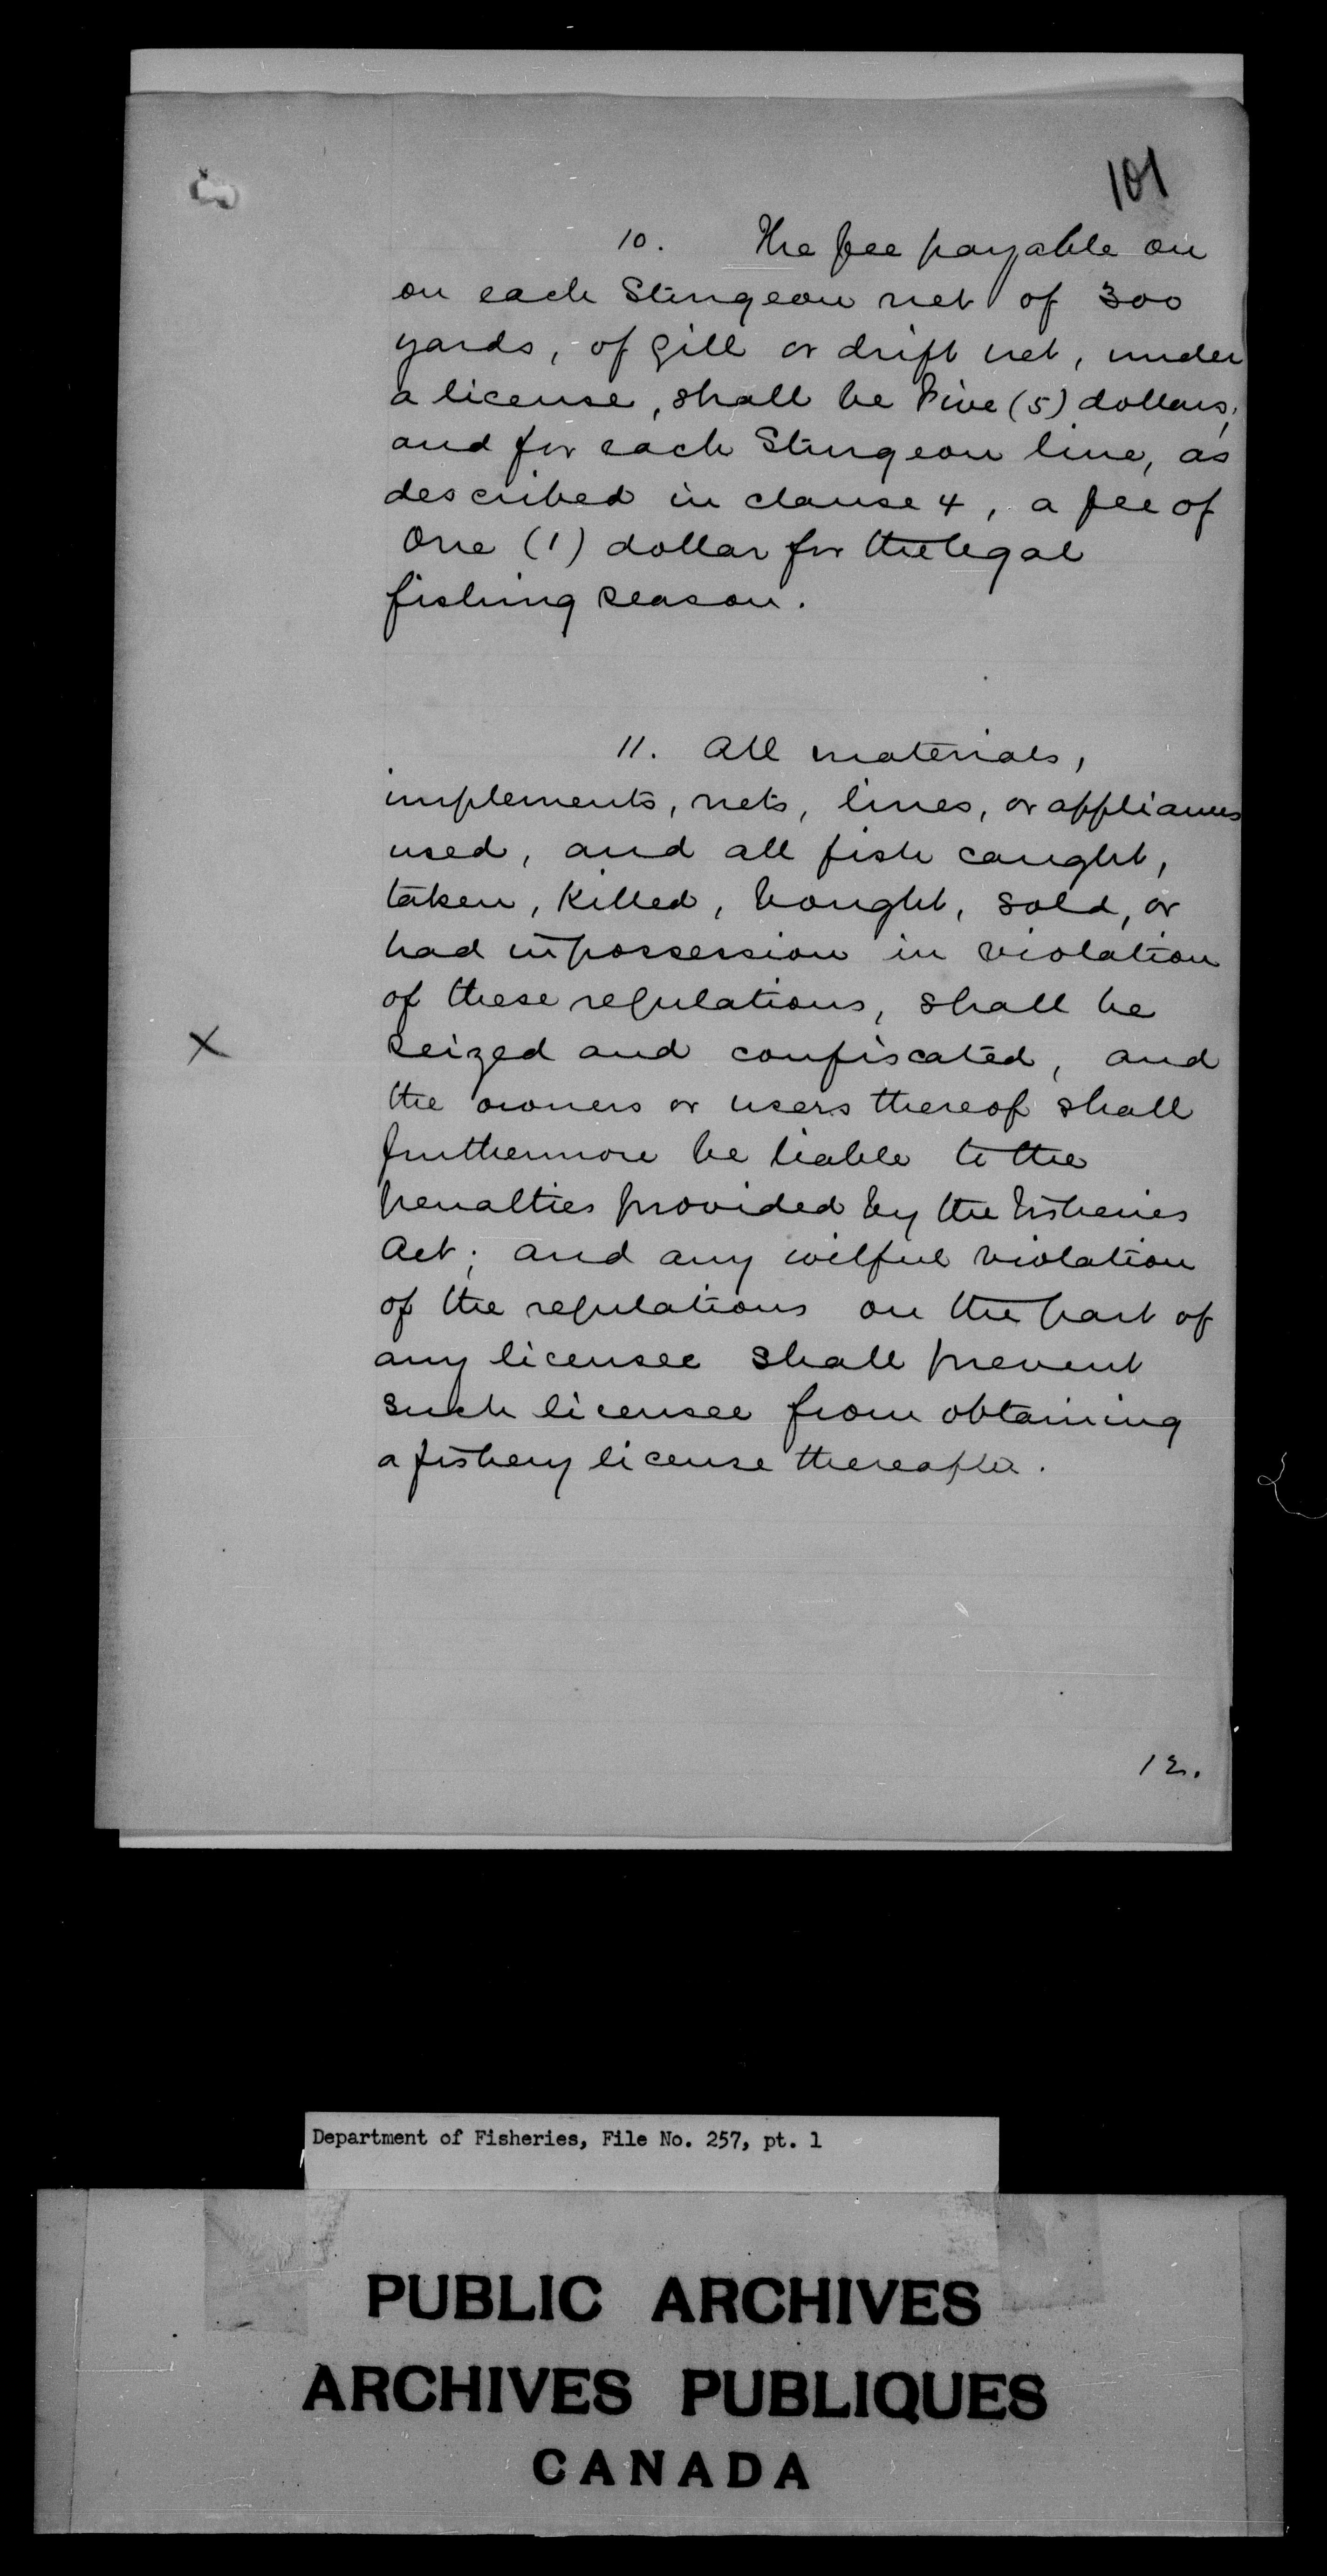 101
10. The fee payable on
on each Sturgeon net of 300
yards, of gill or drift net, under
a license, shall be Five (5) dollars,
and for each Sturgeon line, as
described in clause 4, a fee of
One (1) dollar for the legal
fishing season.
11. All materials,
implements, nets, lines, or appliances
used, and all fish caught,
taken, killed, bought, sold, or
had in possession in violation
of these regulations, shall be
X seized and confiscated, and
the owners or users thereof shall
furthermore be liable to the
penalties provided by the Fisheries
Act; and any wilful violation
of the regulations on the part of
any licensee shall prevent
such licensee from obtaining
a fishery license thereafter.
12.
Department of Fisheries, File No. 257, pt. 1
PUBLIC ARCHIVES
ARCHIVES PUBLIQUES
CANADA